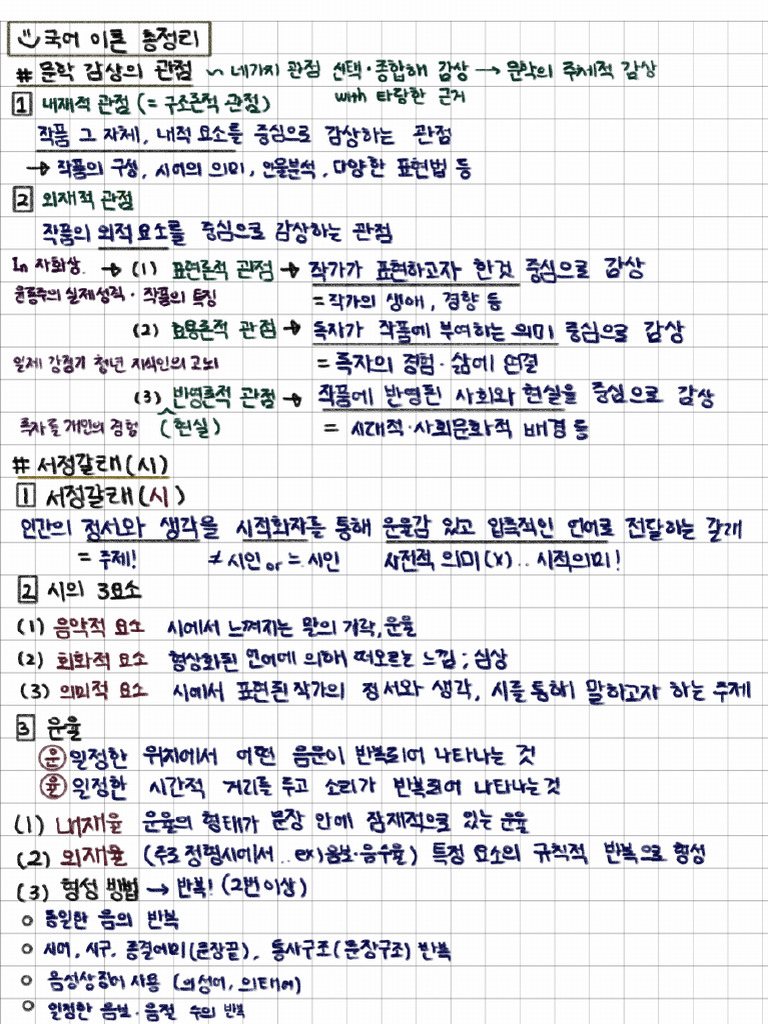 국어 이론 총정리
# 문학 감상의 관점 ~ 네가지 관점 선택·종합해 감상 → 문학의 주체적 감상
with 타당한 근거
1 내재적 관점 (= 구조론적 관점)
작품 그 자체, 내적 요소를 중심으로 감상하는 관점
→ 작품의 구성, 시어의 의미, 인물분석, 다양한 표현법 등
2 외재적 관점
작품의 외적 요소를 중심으로 감상하는 관점
In 자화상. → (1) 표현론적 관점 → 작가가 표현하고자 한것 중심으로 감상
윤동주의 실제성격 · 작품의 특징 = 작가의 생애, 경향 등
(2) 효용론적 관점 → 독자가 작품에 부여하는 의미 중심으로 감상
일제 강점기 청년 지식인의 고뇌 = 독자의 경험·삶에 연결
(3) 반영론적 관점 → 작품에 반영된 사회와 현실을 중심으로 감상
독자들 개인의 경험 (현실) = 시대적·사회문화적 배경 등
# 서정갈래(시)
1 서정갈래(시)
인간의 정서와 생각을 시적화자를 통해 운율감 있고 압축적인 언어로 전달하는 갈래
= 주제! ≠ 시인 or = 시인 사전적 의미(x).. 시적의미!
2 시의 3요소
(1) 음악적 요소 시에서 느껴지는 말의 가락, 운율
(2) 회화적 요소 형상화된 언어에 의해 떠오르는 느낌; 심상
(3) 의미적 요소 시에서 표현된 작가의 정서와 생각, 시를 통해 말하고자 하는 주제
3 운율
운 일정한 위치에서 어떤 음운이 반복되어 나타나는 것
율 일정한 시간적 거리를 두고 소리가 반복되어 나타나는 것
(1) 내재율 운율의 형태가 문장 안에 잠재적으로 있는 운율
(2) 외재율 (주로 정형시에서.. ex) 음보·음수율) 특정 요소의 규칙적 반복으로 형성
(3) 형성 방법 → 반복! (2번 이상)
○ 동일한 음의 반복
○ 시어, 시구, 종결어미(문장끝), 통사구조(문장구조) 반복
○ 음성상징어 사용 (의성어, 의태어)
○ 일정한 음보·음절 수의 반복